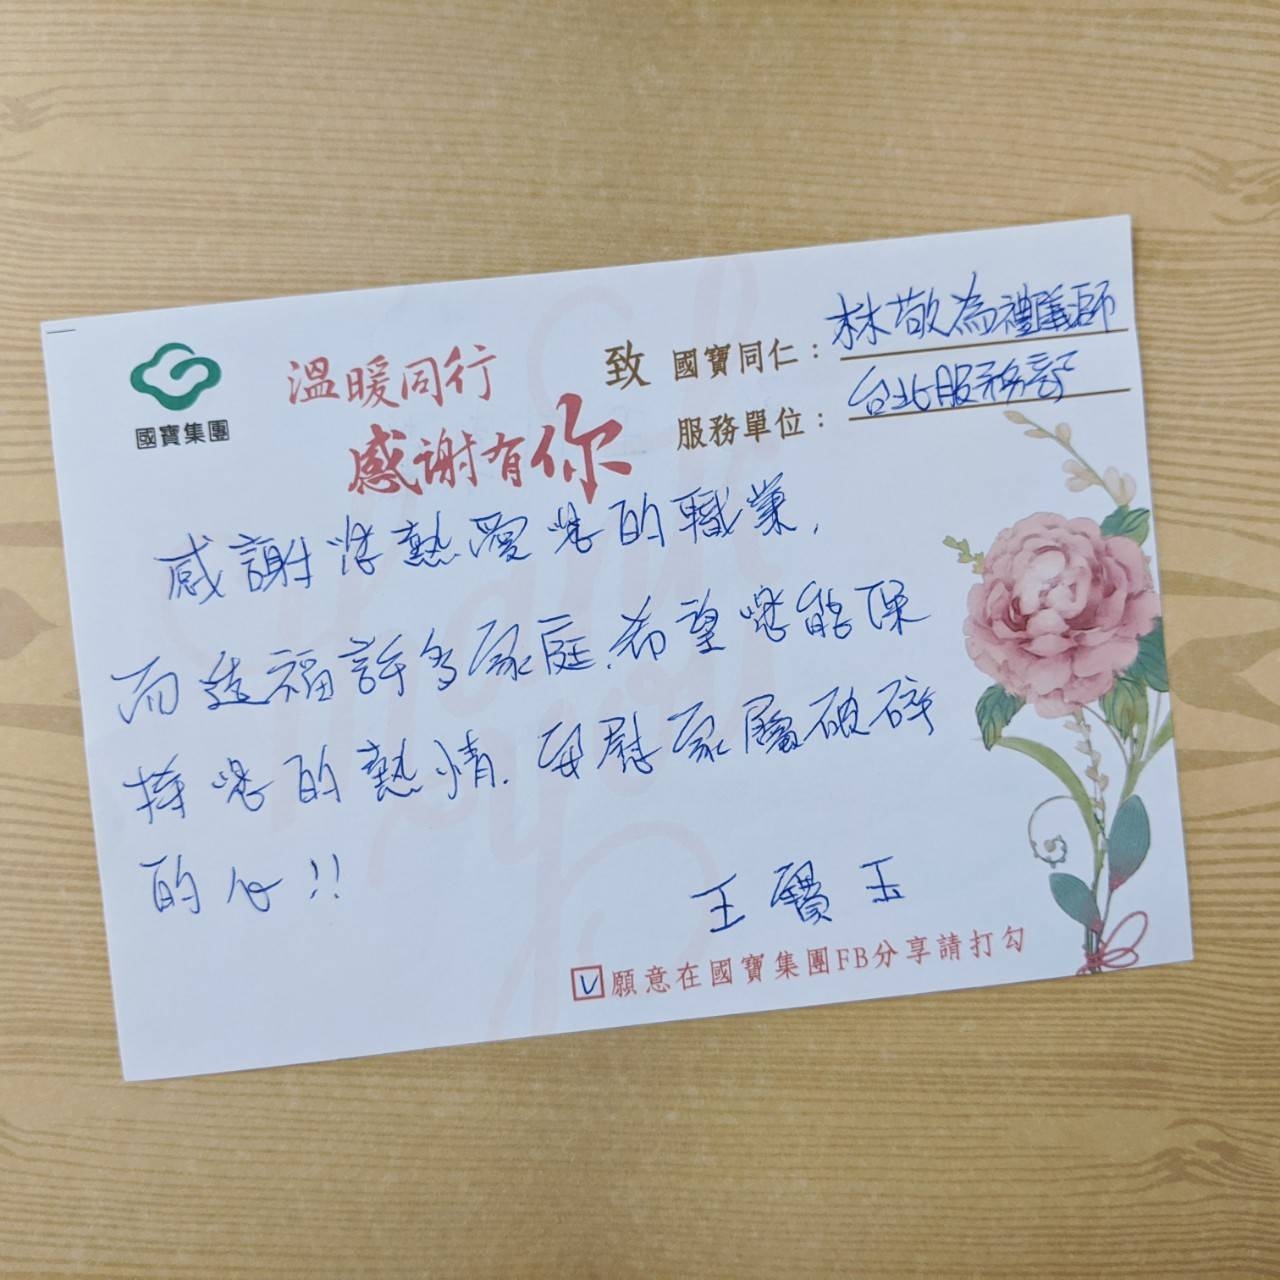 國寶集團
溫暖同行
感謝有你
致 國寶同仁：林敬為禮儀師
服務單位：台北服務部
感謝您熱愛您的職業，
而造福許多家庭，希望您能保
持您的熱情，安慰家屬破碎
的心!!
王寶玉
☑願意在國寶集團FB分享請打勾